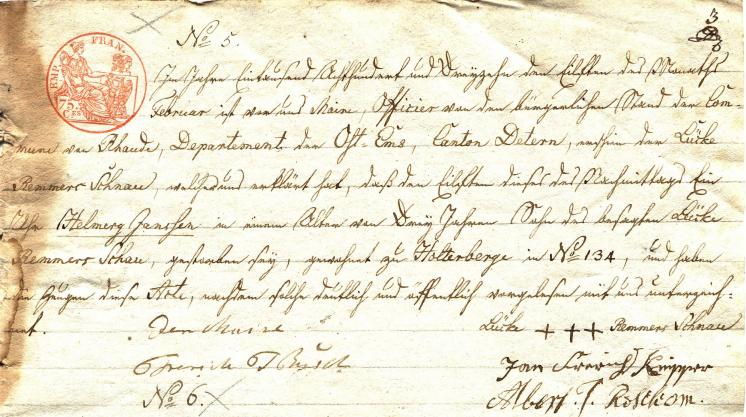 3
No 5.
EMP. FRAN.
75
CES
Im Jahre Eintausend Achthundert und Dreyzehn den Eilften des Monaths
Februar ist vor uns Maire, Officier von den bürgerlichen Stand der Com-
mune von Rhaude, Departement der Ost-Ems, Canton Detern, erschin der Lücke
Remmers Schnau, welcher uns erklärt hat, daß den Eilften dieses des Nachmittags Ein
Uhr Helmerg Janssen in einem Alter von Drey Jahren Sohn des besagten Lücke
Remmers Schau, gestorben sey, gewohnet zu Holterberge in No 134, und haben
die Zeugen diese Acte, nachdem solche deutlich und öffentlich vorgelesen mit uns unterzeich-
net. Der Maire Lücke +++ Remmers Schnau
Frerich T Busch Jan Frerichs Knipper
No 6. Albert T. Rostkam.